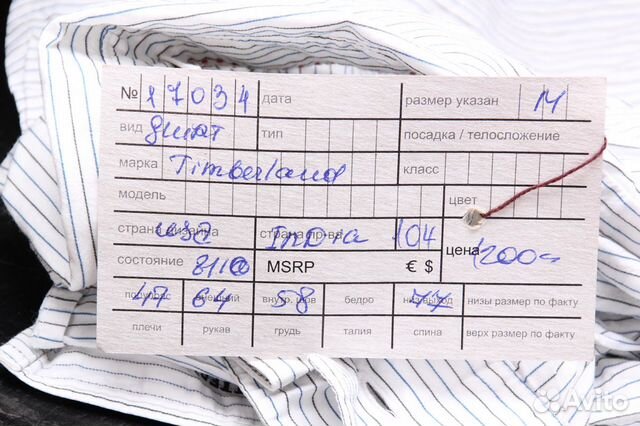 № 17034 дата размер указан M
вид тип посадка / телосложение
марка Timberland класс
модель цвет
страна дизайна usa страна пр-ва India 104 цена 1200=
состояние MSRP € $
полупояс 47 внешний 64 внутр. шов 58 бедро низ выход 77 низы размер по факту
плечи рукав грудь талия спина верх размер по факту
Avito